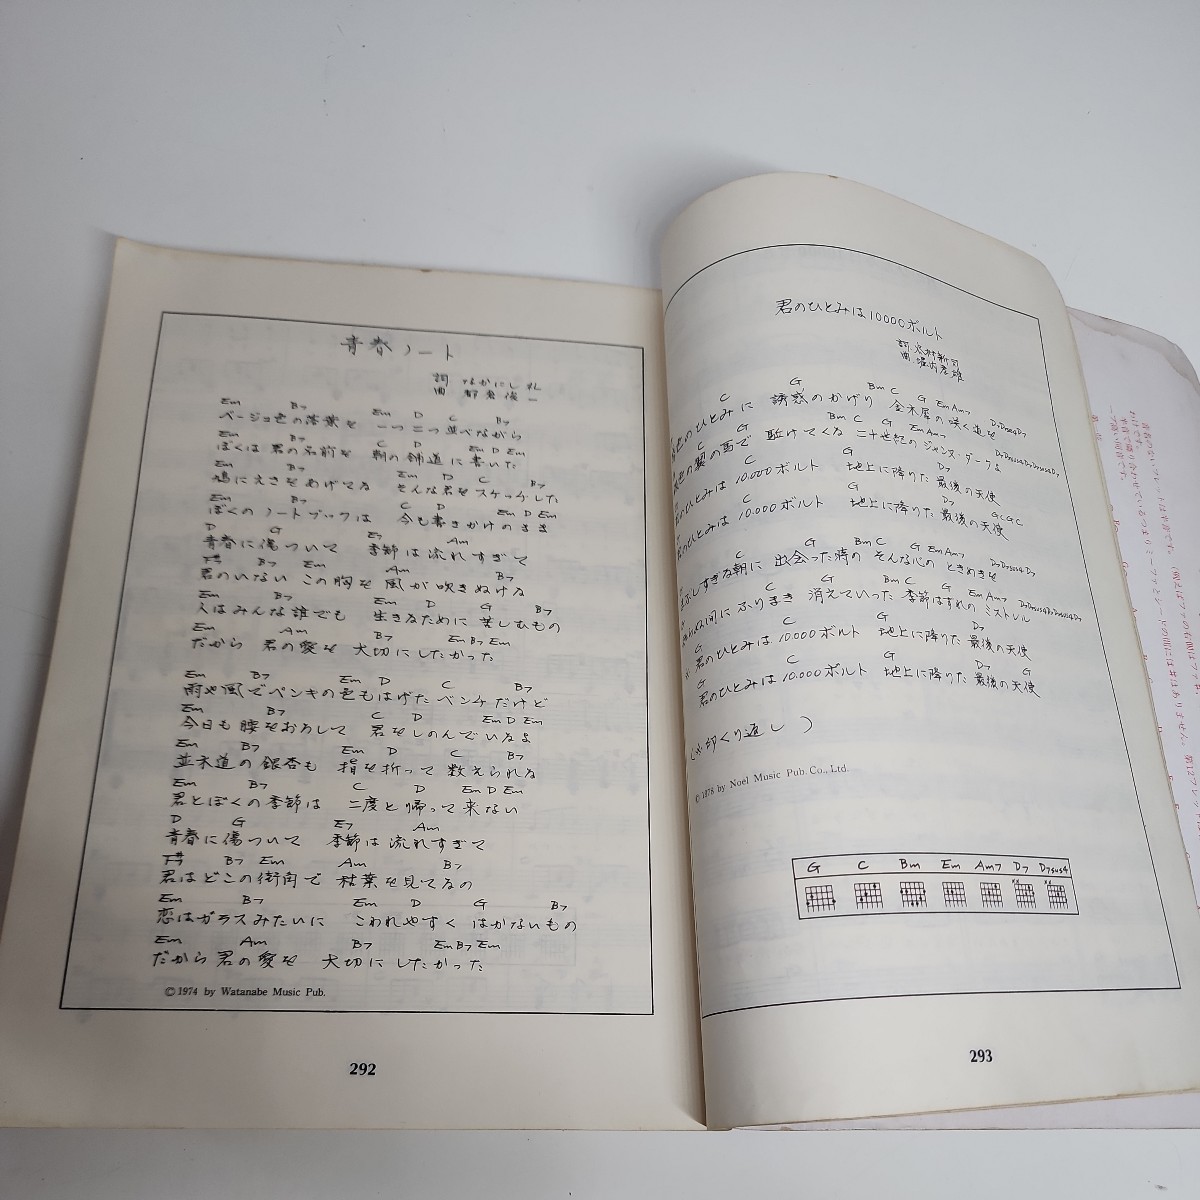 青春ノート
詞 なかにし礼
曲 都倉俊一
Em B7 Em D C B7
ベージュ色の落葉を 一つ二つ並べながら
Em B7 C D Em D Em
ぼくは 君の名前を 朝の舗道に書いた
Em B7 Em D C B7
鳩にえさをあげてる そんな君をスケッチした
Em B7 C D Em D Em
ぼくのノートブックは 今も書きかけのまま
D G E7 Am
青春に傷ついて 季節は流れすぎて
F# B7 Em Am B7
君のいない この胸を 風が吹きぬける
Em B7 Em D G B7
人はみんな誰でも 生きるために 哀しむもの
Em Am B7 Em B7 Em
だから 君の愛を 大切にしたかった
Em B7 Em D C B7
雨や風でペンキの色もはげたベンチだけど
Em B7 C D Em D Em
今日も 腰をおろして 君をしのんでいるよ
Em B7 Em D C B7
並木道の銀杏も 指を折って 数えられる
Em B7 C D Em D Em
君とぼくの季節は 二度と帰って来ない
D G E7 Am
青春に傷ついて 季節は流れすぎて
F# B7 Em Am B7
君はどこの街角で 枯葉を見てるの
Em B7 Em D G B7
恋はガラスみたいに こわれやすく はかないもの
Em Am B7 Em B7 Em
だから君の愛を 大切にしたかった
©1974 by Watanabe Music Pub.
292
君のひとみは10000ボルト
詞 谷村新司
曲 堀内孝雄
C G Bm C G Em Am7 D7 D7sus4 D7
色のひとみに 誘惑のかげり 金木犀の咲く道を
C G Bm C G Em Am7 D7 D7sus4 D7 D7sus4 D7
の翼の馬で 駈けてくる 二十世紀のジャンヌ・ダークよ
C G D7
のひとみは 10.000ボルト 地上に降りた 最後の天使
C G D7 G C G C
のひとみは 10.000ボルト 地上に降りた 最後の天使
C G Bm C G Em Am7 D7 D7sus4 D7
しすぎる朝に 出会った時の そんな心の ときめきを
C G Bm C G Em Am7 D7 D7sus4 D7 D7sus4 D7
間に ふりまき 消えていった 季節はずれの ミストレル
G C G D7
※ 君のひとみは 10.000ボルト 地上に降りた 最後の天使
G C G D7 G
君のひとみは 10.000ボルト 地上に降りた 最後の天使
(※印くり返し)
©1978 by Noel Music Pub. Co., Ltd.
G C Bm Em Am7 D7 D7sus4
293